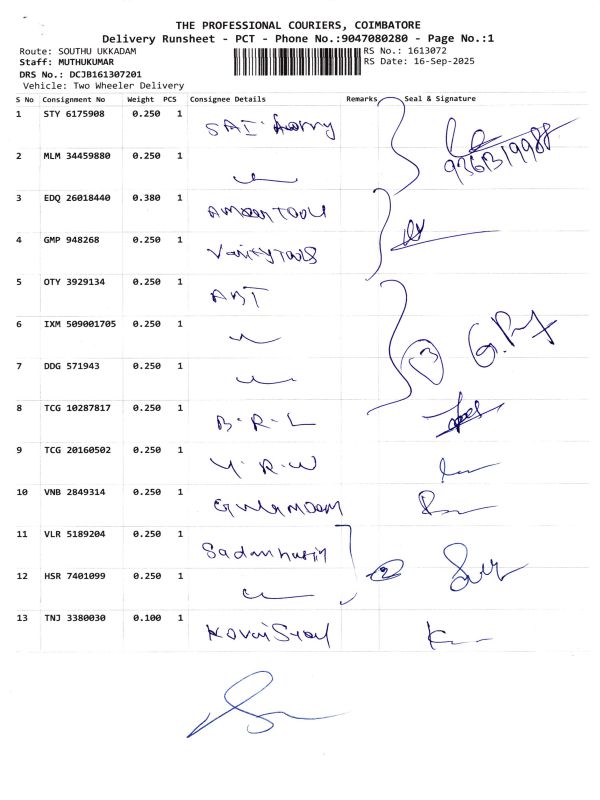 THE PROFESSIONAL COURIERS, COIMBATORE
Delivery Runsheet - PCT - Phone No.:9047080280 - Page No.:1
Route: SOUTHU UKKADAM RS No.: 1613072
Staff: MUTHUKUMAR RS Date: 16-Sep-2025
DRS No.: DCJB161307201
Vehicle: Two Wheeler Delivery
S No Consignment No Weight PCS Consignee Details Remarks Seal & Signature
1 STY 6175908 0.250 1 SAI 9363199988
2 MLM 34459880 0.250 1
3 EDQ 26018440 0.380 1 TOOLS
4 GMP 948268 0.250 1 Variety TOOLS
5 OTY 3929134 0.250 1 ABT
6 IXM 509001705 0.250 1 3
7 DDG 571943 0.250 1
8 TCG 10287817 0.250 1 B.R.L
9 TCG 20160502 0.250 1 Y.R.W
10 VNB 2849314 0.250 1
11 VLR 5189204 0.250 1
12 HSR 7401099 0.250 1 2
13 TNJ 3380030 0.100 1 Kovai